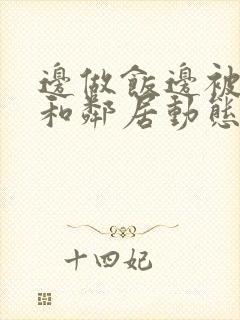 邊做飯邊被
和鄰居動態
十四妃